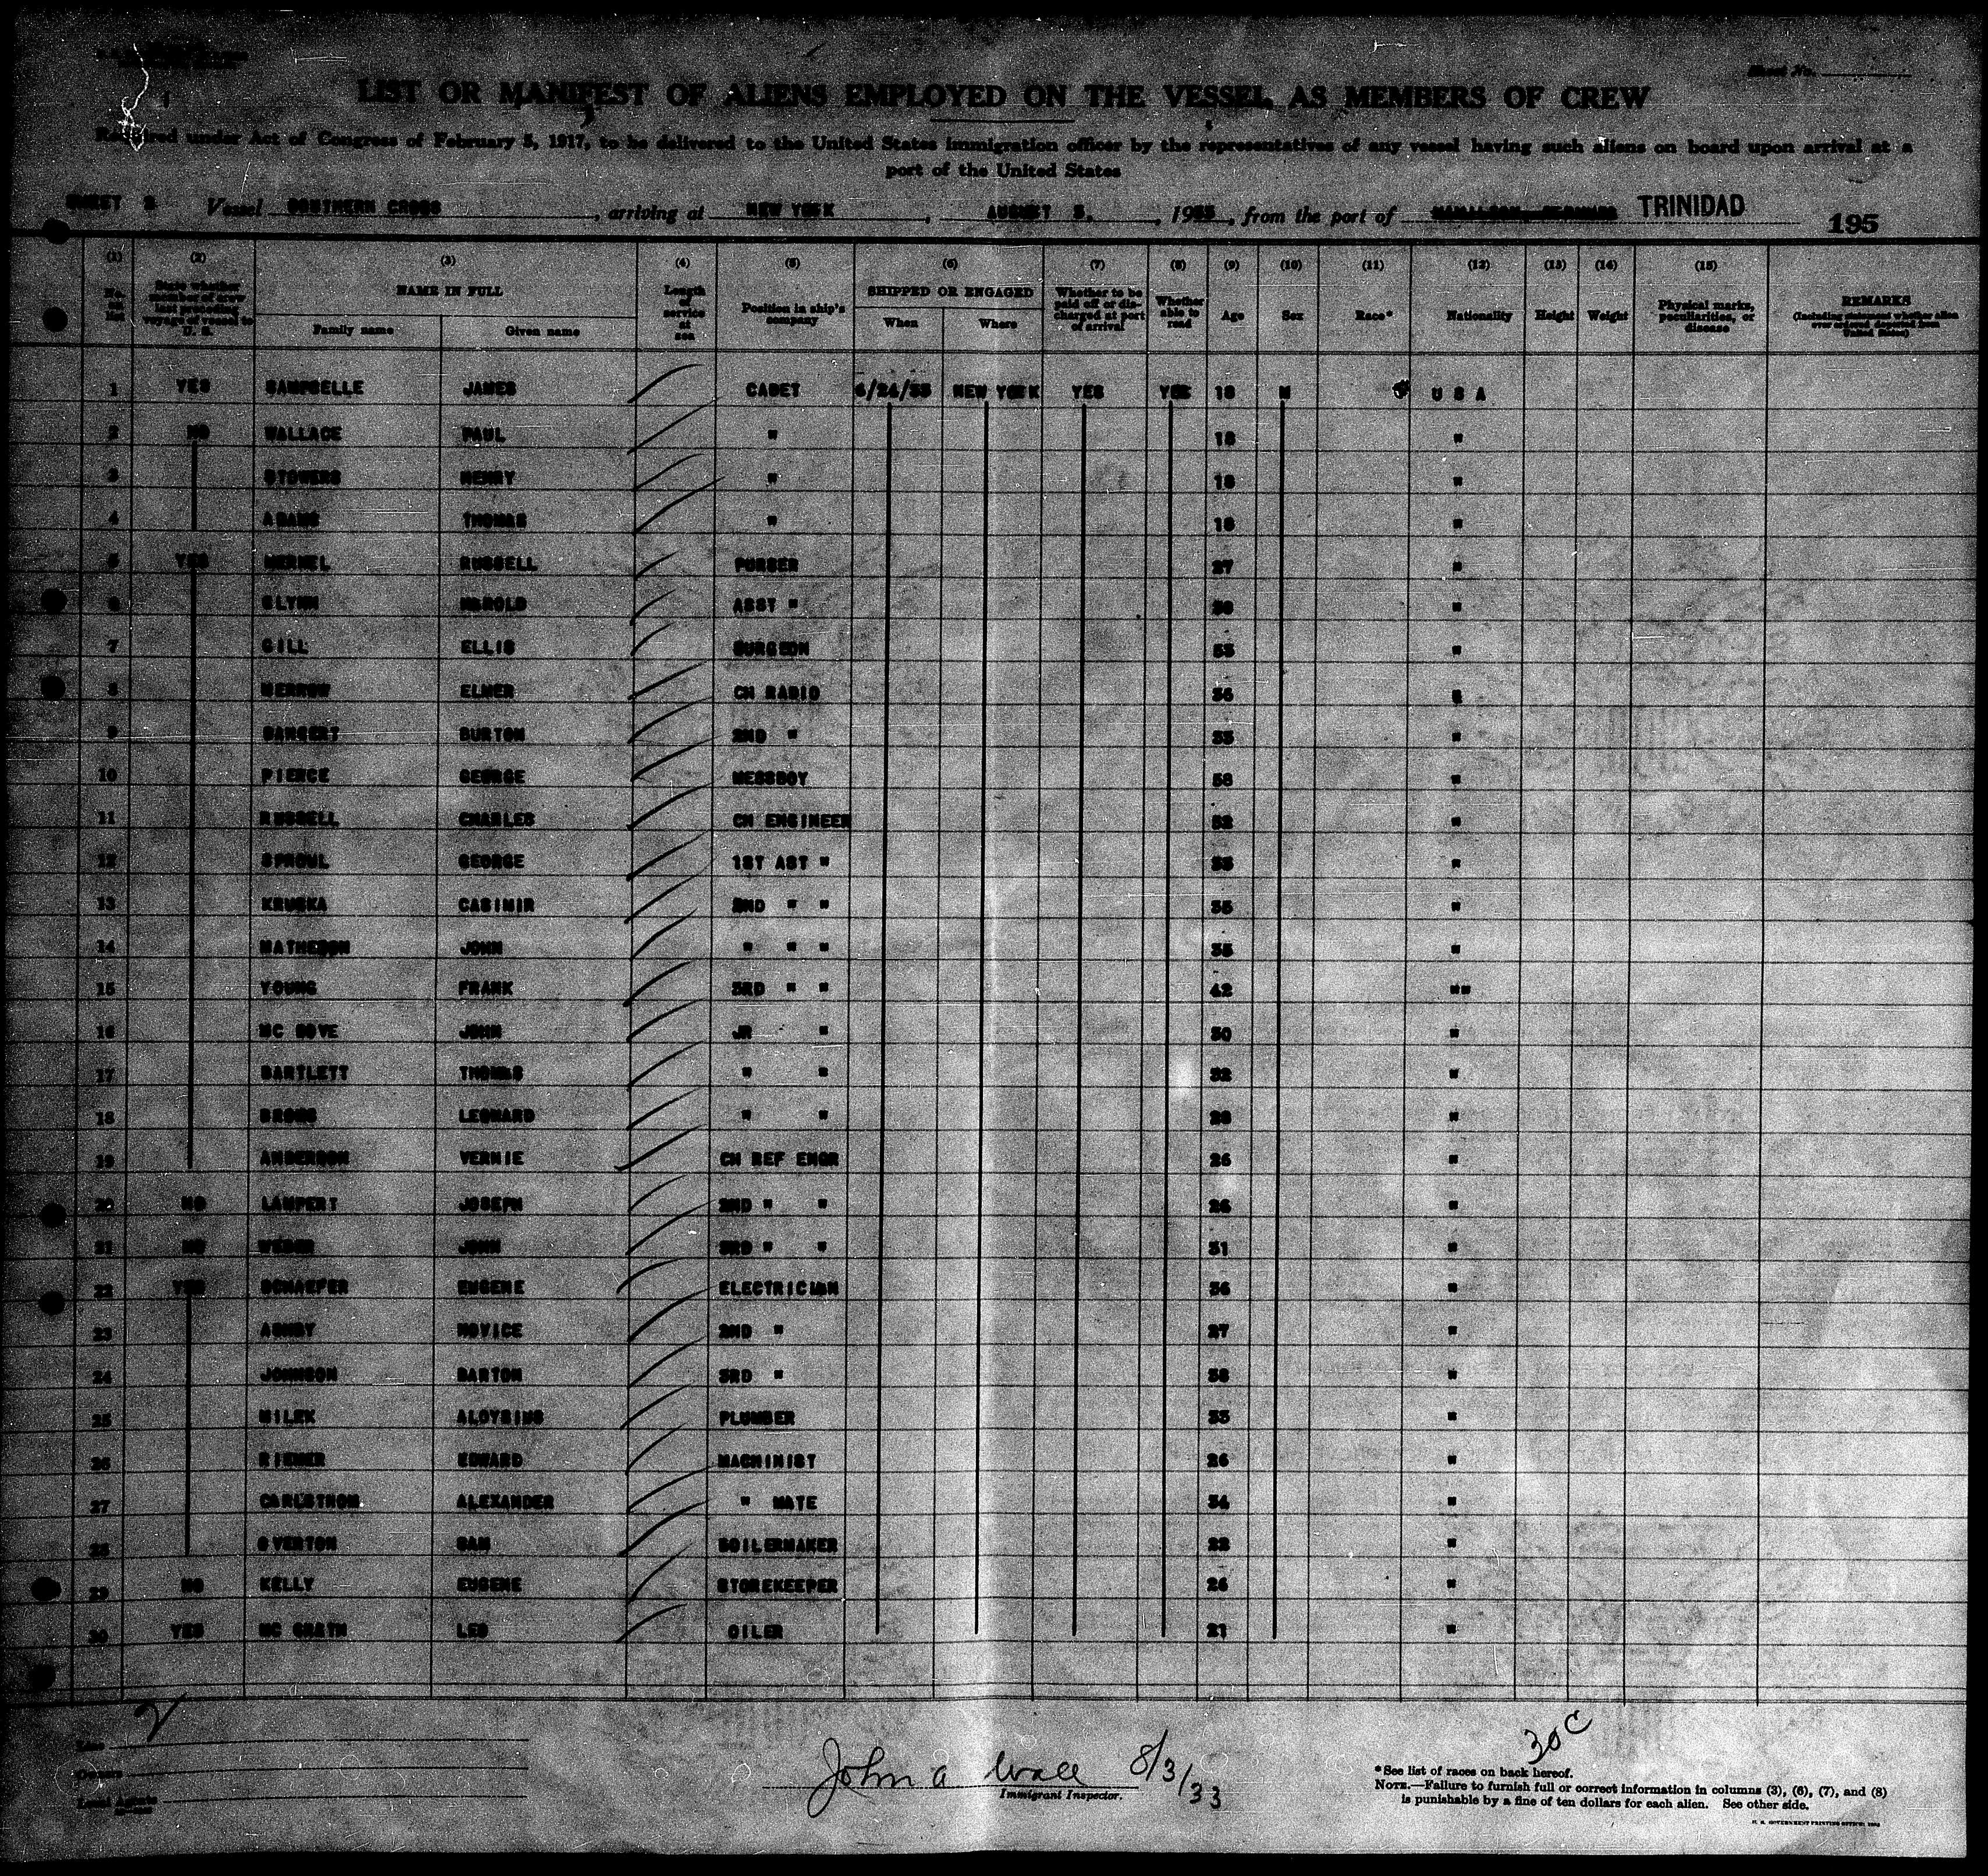 Sheet No.
LIST OR MANIFEST OF ALIENS EMPLOYED ON THE VESSEL AS MEMBERS OF CREW
Required under Act of Congress of February 5, 1917, to be delivered to the United States immigration officer by the representatives of any vessel having such aliens on board upon arrival at a
port of the United States
SHEET 2 Vessel SOUTHERN CROSS, arriving at NEW YORK, AUGUST 3, 1933, from the port of TRINIDAD 195
(1) (2) (3) (4) (5) (6) (7) (8) (9) (10) (11) (12) (13) (14) (15)
No. on list State whether member of crew last preceding voyage of vessel to U. S. NAME IN FULL Family name Given name Length of service at sea Position in ship's company SHIPPED OR ENGAGED When Where Whether to be paid off or discharged at port of arrival Whether able to read Age Sex Race* Nationality Height Weight Physical marks, peculiarities, or disease REMARKS (Including statement whether alien ever ordered deported from United States)
1 YES JAMES CADET 6/24/33 NEW YORK YES YES 18 M U S A
2 NO WALLACE PAUL " 18 "
3 STOWERS HENRY " 18 "
4 ADAMS THOMAS " 18 "
5 YES RUSSELL PURSER 27 "
6 HAROLD ASST " "
7 GILL ELLIS SURGEON "
8 MERROW ELMER CH RADIO 36
9 BURTON 2ND " "
10 PIERCE GEORGE MESSBOY "
11 RUSSELL CHARLES CH ENGINEER "
12 SPROUL GEORGE 1ST AST " "
13 KRUSKA CASIMIR 2ND " " "
14 MATHESON JOHN " " " "
15 YOUNG FRANK 3RD " " 42 ""
16 JOHN JR " 30 "
17 BARTLETT THOMAS " " 32 "
18 LEONARD " " 28 "
19 ANDERSON VERNIE CH REF ENGR 26 "
20 NO LAMPERT JOSEPH 2ND " " 26 "
21 NO WEBER JOHN 3RD " " 31 "
22 YES SCHAEFER EUGENE ELECTRICIAN 36 "
23 NOVICE 2ND " 27 "
24 JOHNSON BARTON 3RD " "
25 MILEK ALOYSIUS PLUMBER "
26 RIEMER EDWARD MACHINIST 26 "
27 CARLSTROM ALEXANDER " MATE 34 "
28 OVERTON SAM BOILERMAKER 22 "
29 NO KELLY EUGENE STOREKEEPER 26 "
30 YES MC GRATH LEO OILER 21 "
2
Line
Owners
Local Agents
John A Wall 8/3/33
Immigrant Inspector.
30 C
*See list of races on back hereof.
NOTE.—Failure to furnish full or correct information in columns (3), (6), (7), and (8)
is punishable by a fine of ten dollars for each alien. See other side.